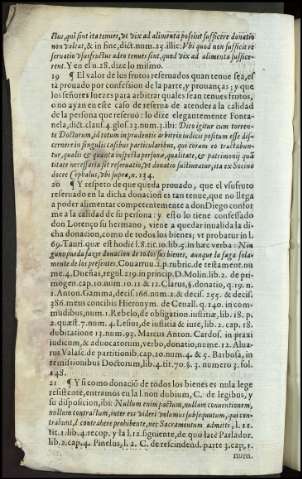 tius, qui sint ita tenues, vt vix ad alimenta possint sufficere donatio
non valeat, & in fine, dict. num. 23. ibi: Vbi quod non sufficit re
seruatio vsusfructus adeo tenuis sint, quod vix ad alimenta suffice-
rent. Y en el n. 28. dize lo mismo.
19 ¶ El valor de los frutos reseruados quan tenue sea, es
ta prouado por confession de la parte, y prouanças; y que
los señores luezes para arbitrar quales sean tenues frutos,
o no ayan en este caso de reserua de atender a la calidad
de la persona que reseruò: lo dize elegantemente Fontа-
nela, dict. clausi. 4. glos. 23. num. 3. ibi: Dico igitur cum torren-
te Doctorum, id totum in prudentis arbitrio iudicis positum esse disc-
ernere in singulis casibus particularibus, qui coram eo tractabun-
tur, qualis & quanta inspecta persona, qualitate, & patrimonij quã
titate necessaria sit reseruatio, vt donatio sustineatur, ita ex Socino
docet Cephalus, vbi supra, n. 134.
20 ¶ Y respeto de que queda prouado, que el vsufruto
reseruado en la dicha donacion es tan tenue, que no llega
a poder alimentar competentemente a don Diego confor
me a la calidad de su persona: y esto lo tiene confessado
don Lorenço su hermano, viene a quedar inualida la di-
cha donacion, como de todos los bienes; vt probatur in l.
69. Tauri quæ est hodie l. 8. tit. 10. lib. 5. in hæc verba: Nin
guno pueda fazer donacion de todos sus bienes, aunque la faga sola-
mente de los presentes. Couarru. l. p. rubric. de testament. nu
me. 4. Dueñas, regul. 219. in princip. D. Molin. lib. 2. de pri-
mogen. cap. 10. num. 10. 11 & 12. Clarus, §. donatio, q. 19. n.
1. Anton. Gamma, decis. 166. num. 2. & decis. 255. & decis.
386. num. concisius Hieronym. de Ceuall. q. 140. in com-
mudibus, num. 1. Rebelo, de obligation. iustitiæ, lib. 18. p.
2. quæst. 7. num. 4. Lesius, de iustitia & iure, lib. 2. cap. 18.
dubitatione 13. num. 95. Martin Anton. Cardos. in praxi
iudicum, & aduocatorum, verbo, donatio, nume. 12. Alua-
rus Valasc. de partitionib. cap. 10. num. 4. & 5. Barbosa, in
remissionibus Doctorum, lib. 4. tit. 70. §. 3. numero 3. fol.
148.
21 ¶ Y si como donaciõ de todos los bienes es nula lege
resistente, entramos en la l. non dubium, C. de legibus, y
su disposicion, ibi: Nullum enim pactum, nullam conuentionem,
nullum contractum, inter eos videri volumus subsequutum, qui con-
trahunt, l. contrahere prohibente, nec Sacramentum admitti, l. 11.
tit. 1. lib. 4. recop. y la l. 12. siguiente, de quo latè Parlador.
lib. 2. cap. 4. Pinelus, l. 2. C. de rescindend. parte 3. cap. 1.
num.